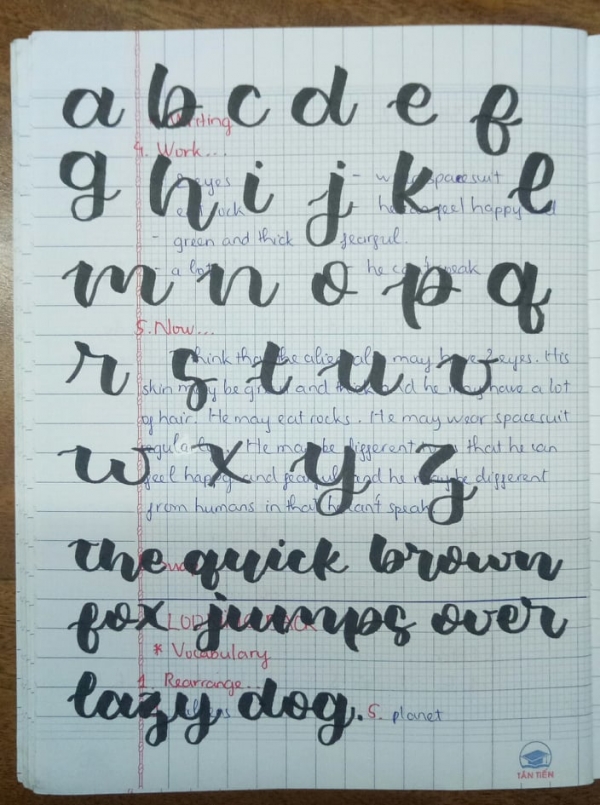 a b c d e f
Writing
4. Work...
g h i j k l
eyes
spacesuit
feel happy
- green and thick
fearful.
- a lot
he can't speak
m n o p q
5. Now...
r s t u v
think the alien may have 2 eyes. His
skin may be green and thick and he may have a lot
of hair. He may eat rocks. He may wear spacesuit
He may be different that he can
w x y z
feel happy and fearful and he maybe different
from humans in that he can't speak
the quick brown
fox jumps over
* Vocabulary
1. Rearrange...
lazy dog.
5. planet
TÂN TIẾN